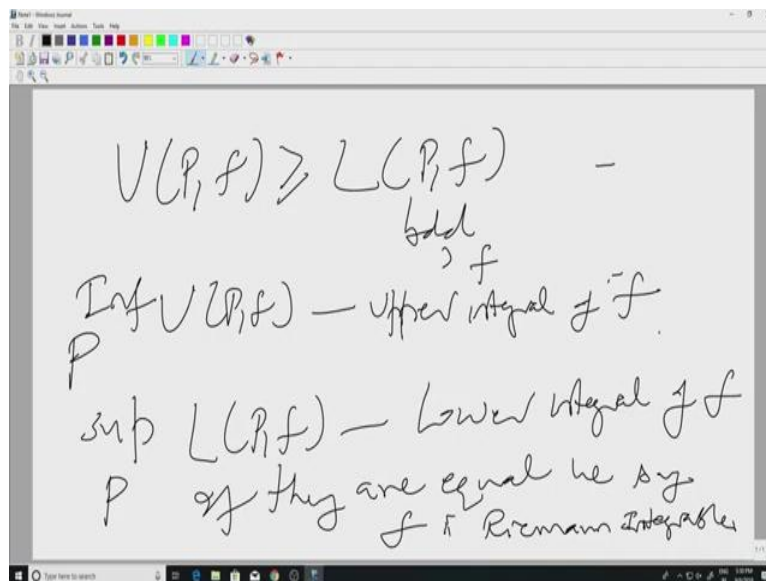 Note1 - Windows Journal
File Edit View Insert Actions Tools Help
U(P, f) ⩾ L(P, f) –
bdd
f
Inf U(P, f) – upper integral of f.
P
sup L(P, f) – Lower integral of f
P If they are equal we say
f is Riemann Integrable
Type here to search